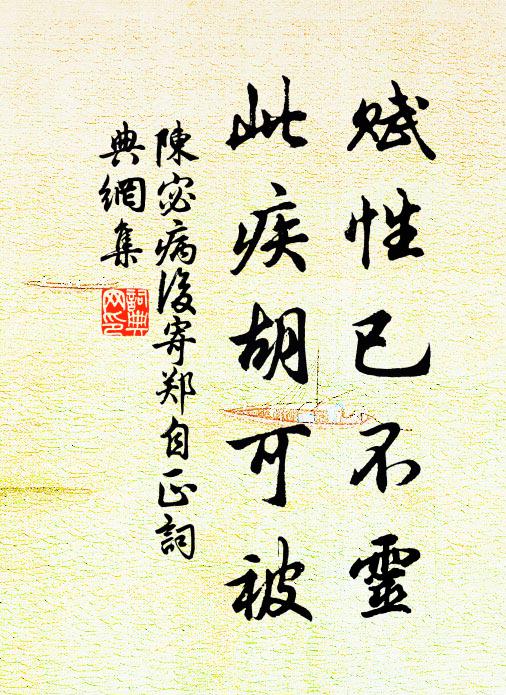 赋性已不靈
此疾胡可被
陳宓病後寄郑自正詞
典網集
詞典
网印